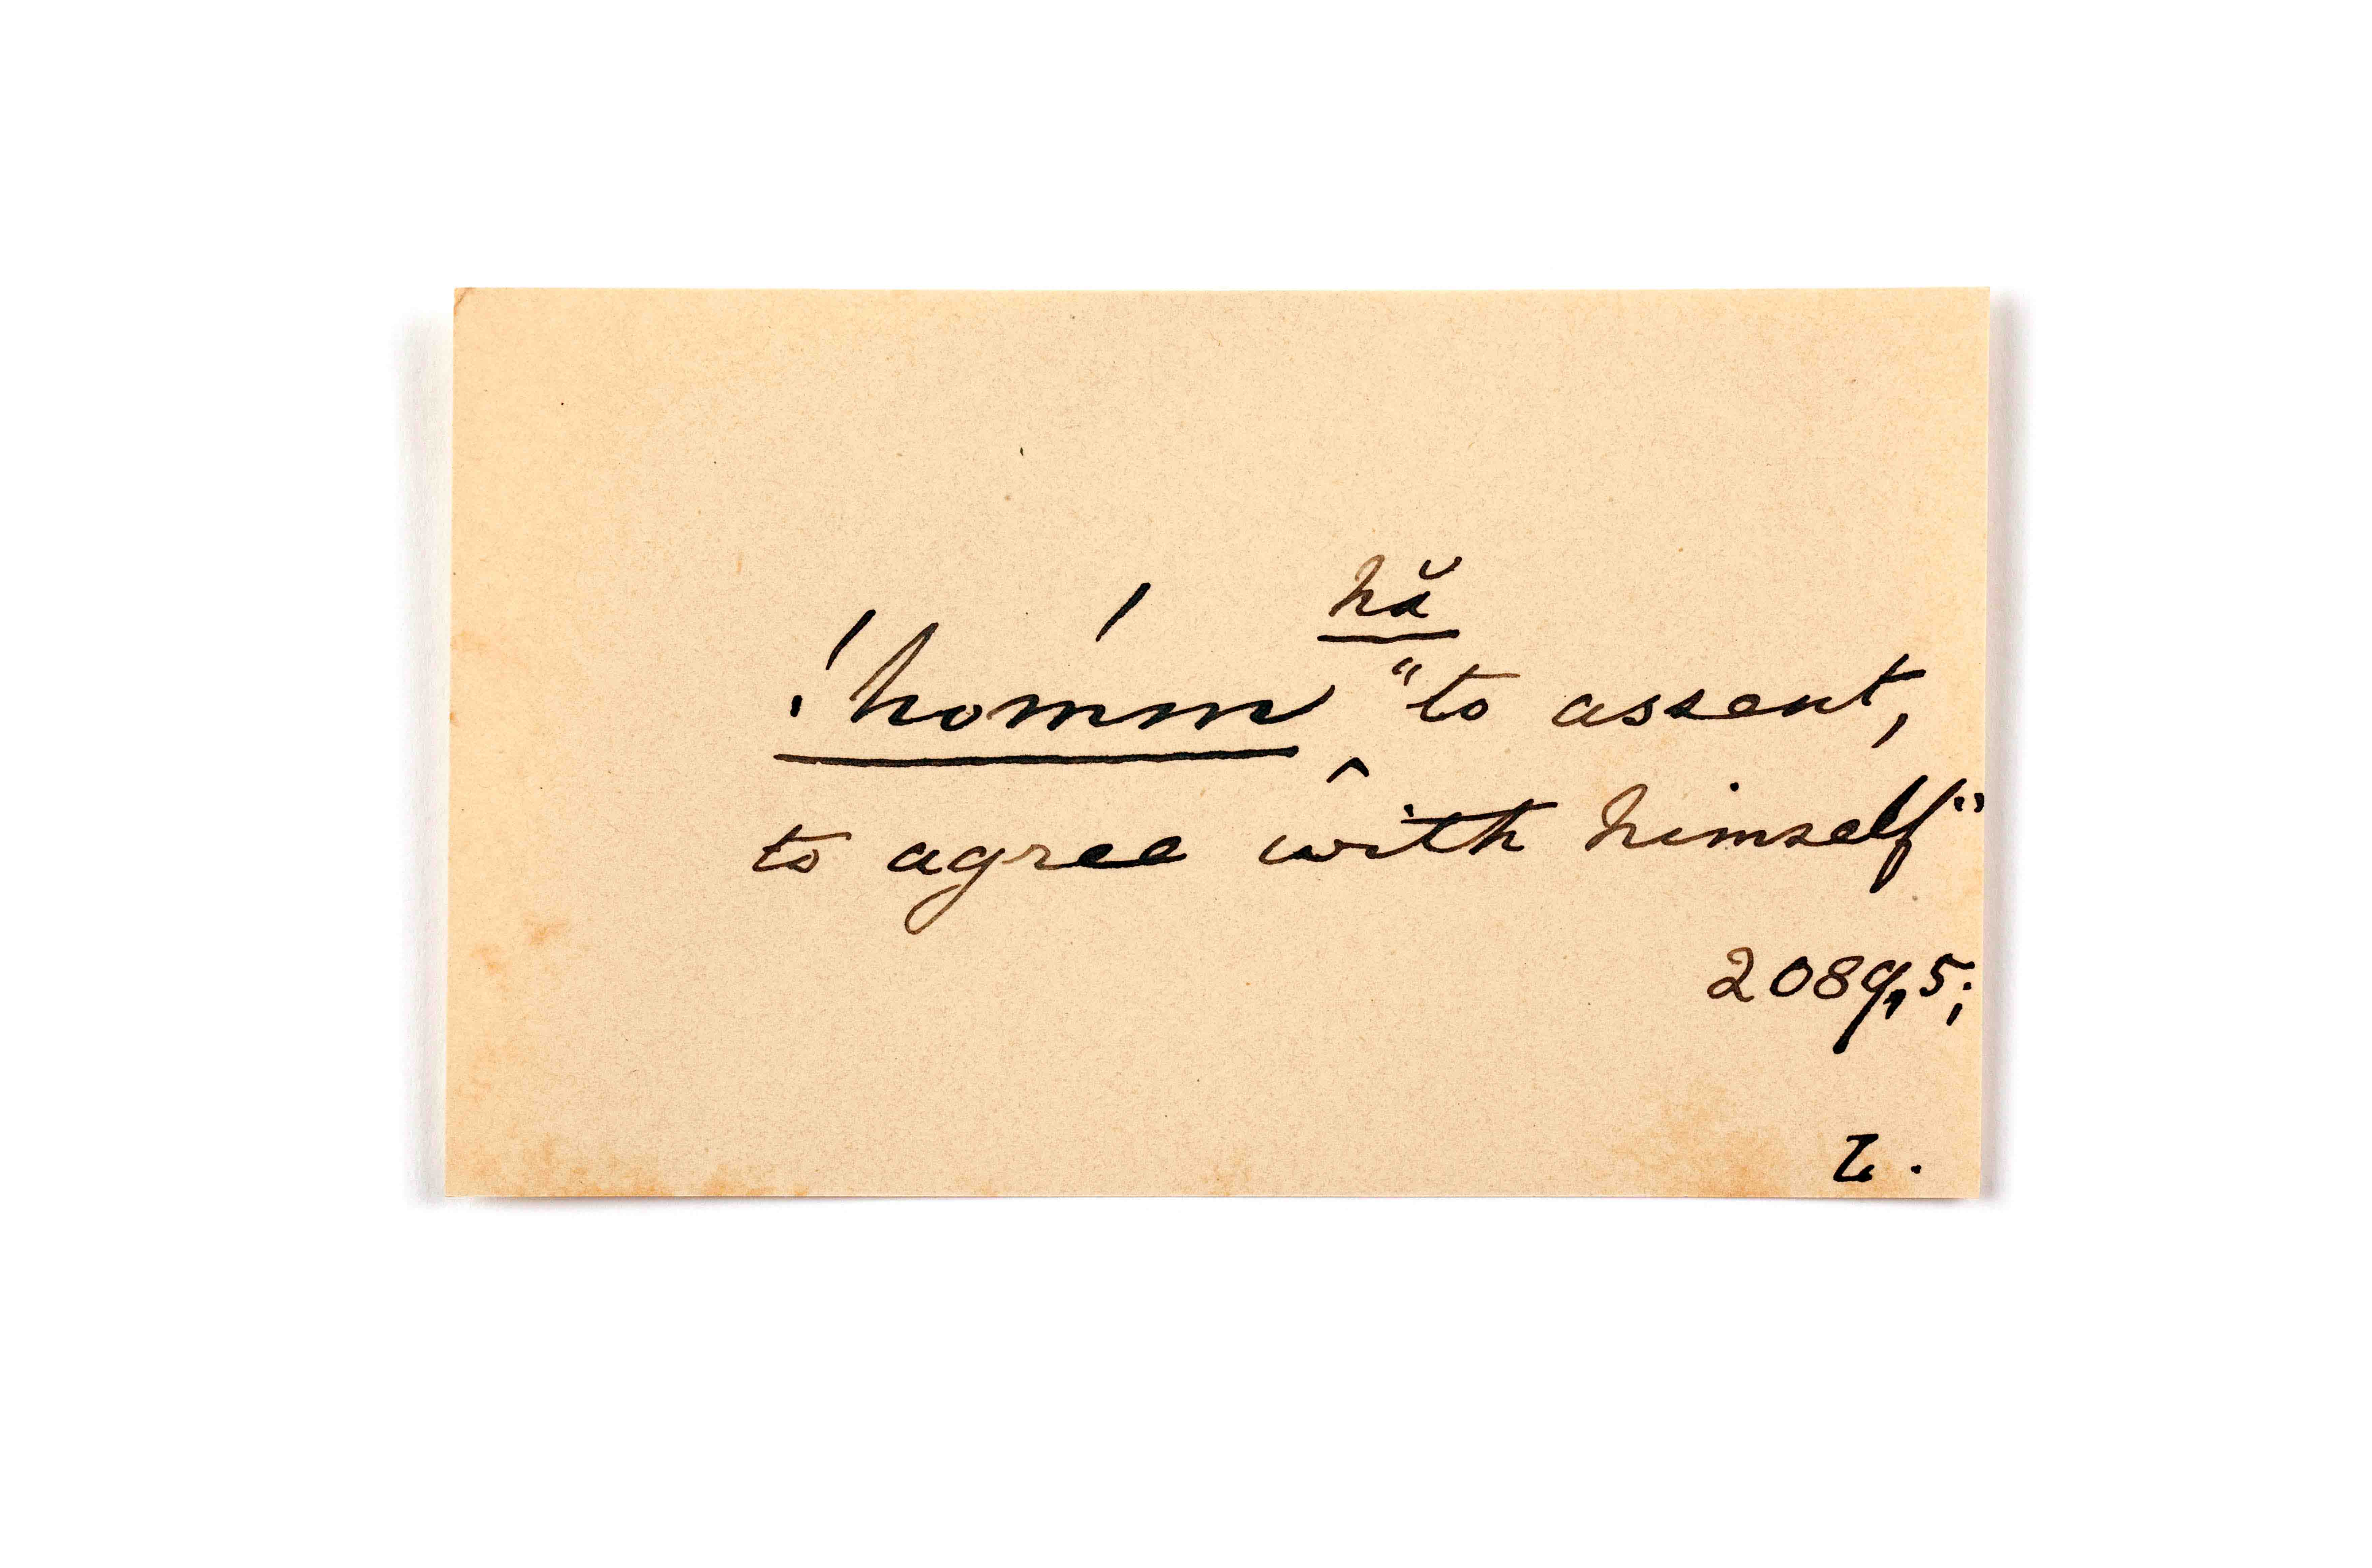 hă
!hómm "to assent,
^
to agree with himself"
2089,5;